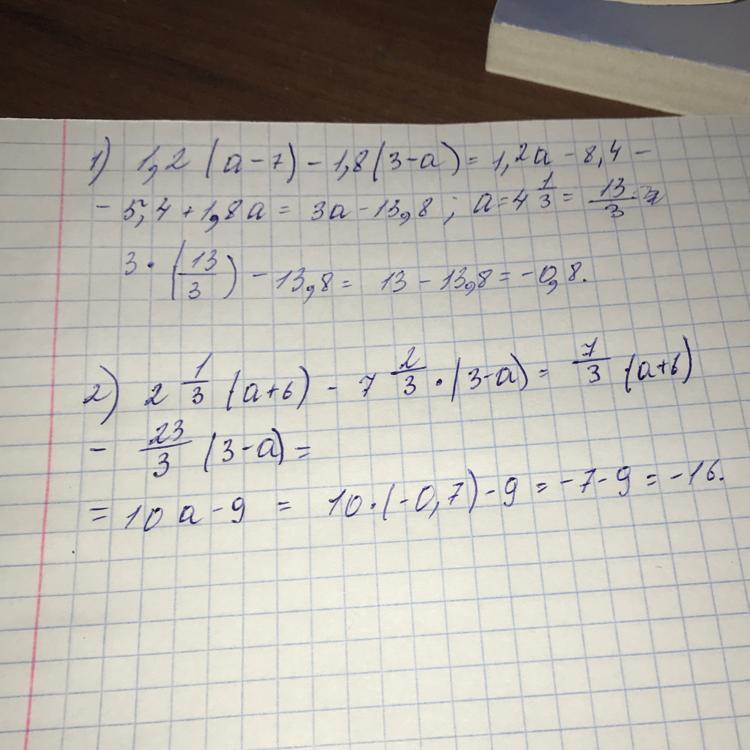 1) 1,2 (a-7) - 1,8 (3-a) = 1,2a - 8,4 -
- 5,4 + 1,8a = 3a - 13,8 ; a = 4 1/3 = 13/3
3 · (13/3) - 13,8 = 13 - 13,8 = -0,8.
2) 2 1/3 (a+6) - 7 2/3 · (3-a) = 7/3 (a+6)
- 23/3 (3-a) =
= 10a - 9 = 10·(-0,7) - 9 = -7 - 9 = -16.